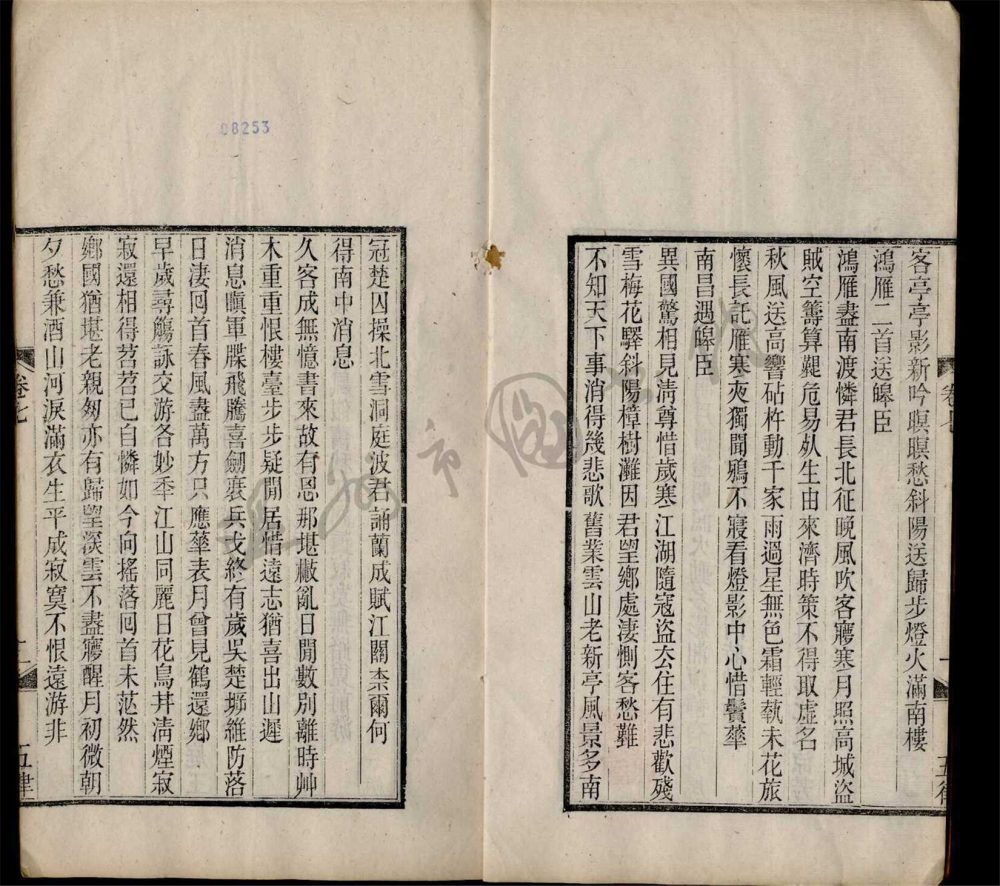 客亭亭影新吟暝暝愁斜陽送歸步燈火滿南樓
鴻雁二首送皞臣
鴻雁盡南渡憐君長北征晚風吹客寢寒月照高城盜
賊空籌算艱危易死生由來濟時策不得取虛名
秋風送高響砧杵動千家雨過星無色霜輕菊未花旅
懷長託雁寒夾獨聞鴉不寢看燈影中心惜鬢華
南昌遇皞臣
異國驚相見清尊惜歲寒江湖隨寇盜去住有悲歡殘
雪梅花驛斜陽樟樹灘因君望鄉處淒惻客愁難
不知天下事消得幾悲歌舊業雲山老新亭風景多南
冠楚囚操北雪洞庭波君誦蘭成賦江關柰爾何
得南中消息
久客成無憶書來故有恩那堪檄亂日聞數別離時艸
木重重恨樓臺步步疑閒居惜遠志猶喜出山遲
消息瞋軍牒飛騰喜劍衷兵戈終有歲吳楚維防落
日淒回首春風盡萬方只應華表月曾見鶴還鄉
早歲尋觴詠交游各妙年江山同麗日花鳥井清煙寂
寂還相得苕苕已自憐如今向搖落回首未茫然
鄉國猶堪老親匆亦有歸望深雲不盡寢醒月初微朝
夕愁兼酒山河淚滿衣生平成寂寞不恨遠游非
卷七
五律
08253